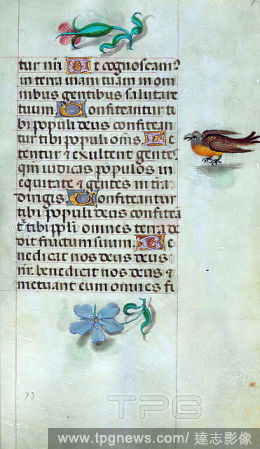 tur nr̄i Ut cognoscam⁹
in terra uiam tuam in om
nibus gentibus salutare
tuum Confiteantur ti
bi populi deus confitean
tur tibi populi om̄s Le
tentur et exultent gente
qm̄ iudicas populos in
equitate et gentes in t̄ra
dirigis Confiteantur
tibi populi deus confitea
t̄r tibi ppl̄i omnes terra de
dit fructum suum Be
nedicat nos deus deus
nr̄ benedicat nos deus et
metuant eum omnes fi
73
TPG
www.tpgnews.com/ 達志影像